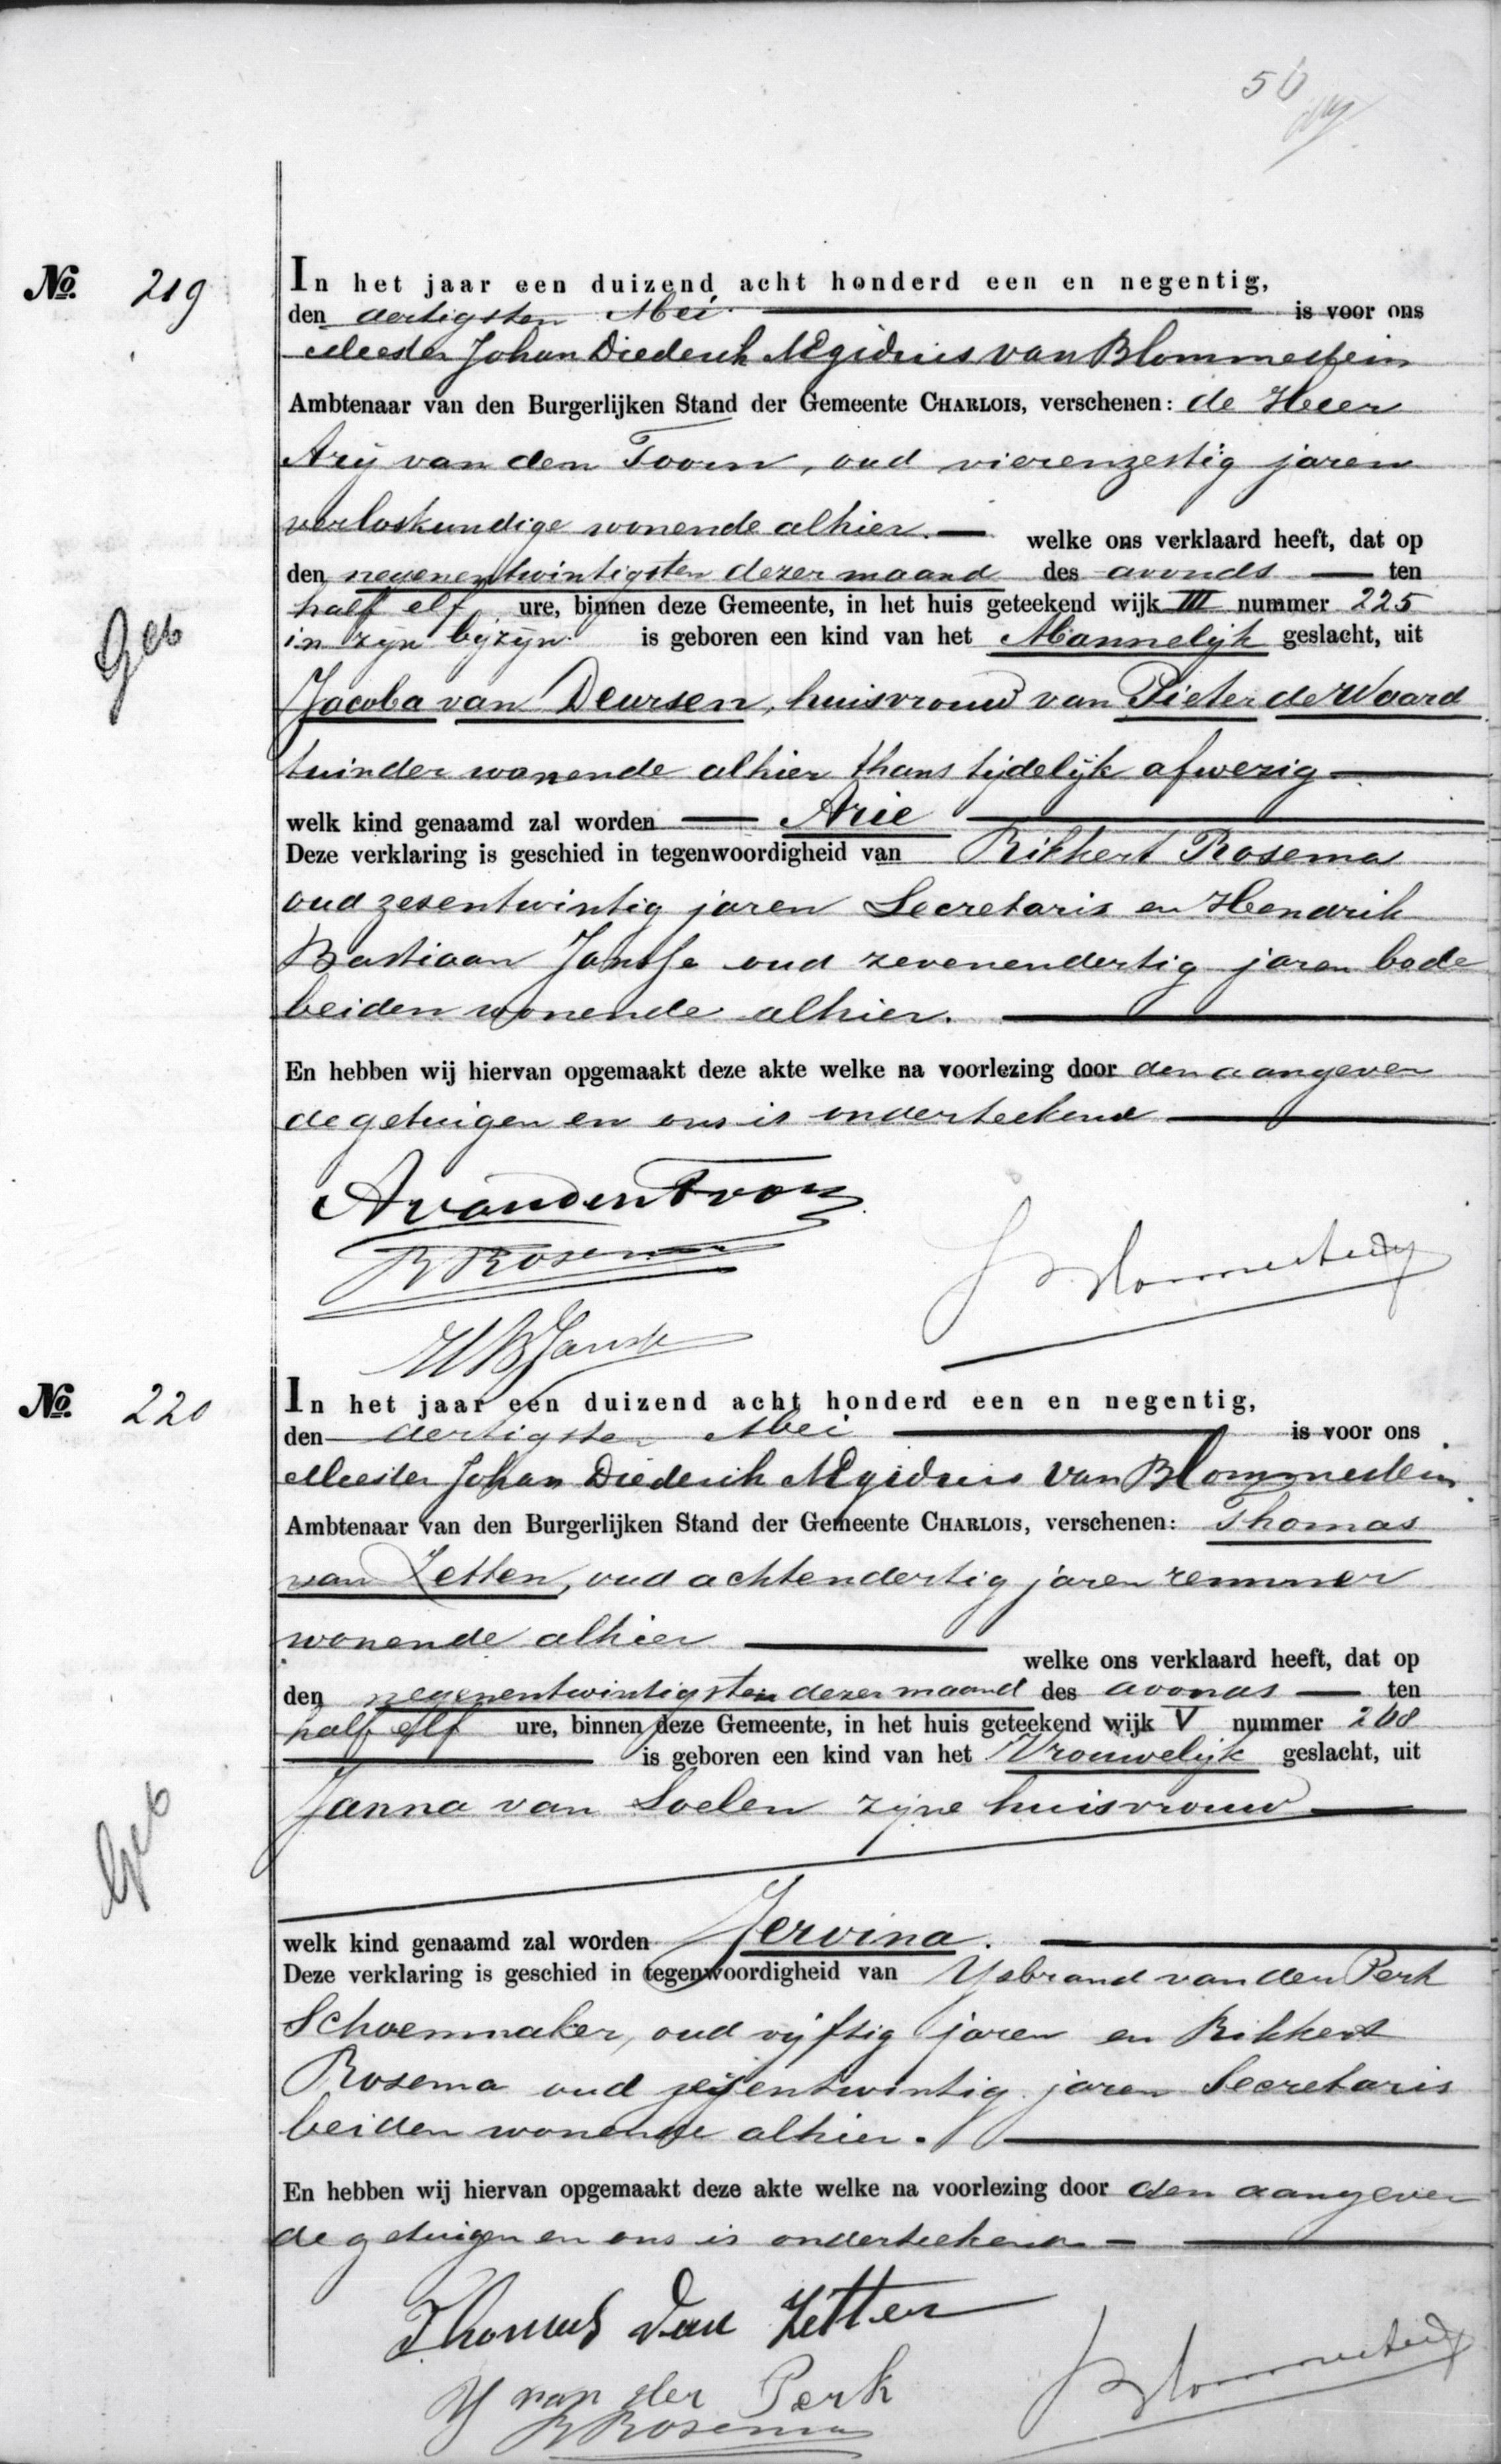 56
No. 219
In het jaar een duizend acht honderd een en negentig,
den dertigsten Mei is voor ons
Meester Johan Diederik AEgidius van Blommestein
Ambtenaar van den Burgerlijken Stand der Gemeente CHARLOIS, verschenen: de Heer
Arij van den Toorn, oud vierenzestig jaren
verloskundige wonende alhier. welke ons verklaard heeft, dat op
den negenentwintigsten dezer maand des avonds ten
half elf ure, binnen deze Gemeente, in het huis geteekend wijk III nummer 225
in zijn bijzijn is geboren een kind van het Mannelijk geslacht, uit
Geb
Jacoba van Deursen, huisvrouw van Pieter de Waard
tuinder wonende alhier thans tijdelijk afwezig
welk kind genaamd zal worden Arie
Deze verklaring is geschied in tegenwoordigheid van Rikkert Rosema
oud zesentwintig jaren Secretaris en Hendrik
Bastiaan Janse oud zevenendertig jaren bode
beiden wonende alhier.
En hebben wij hiervan opgemaakt deze akte welke na voorlezing door den aangever
de getuigen en ons is onderteekend
A van den Toorn
R Rosema
Blommestein
H B Janse
No. 220
In het jaar een duizend acht honderd een en negentig,
den dertigsten Mei is voor ons
Meester Johan Diederik AEgidius van Blommestein
Ambtenaar van den Burgerlijken Stand der Gemeente CHARLOIS, verschenen: Thomas
van Zetten, oud achtendertig jaren
wonende alhier welke ons verklaard heeft, dat op
den negenentwintigsten dezer maand des avonds ten
half elf ure, binnen deze Gemeente, in het huis geteekend wijk V nummer 208
is geboren een kind van het Vrouwelijk geslacht, uit
Geb
Janna van Soelen zijne huisvrouw
welk kind genaamd zal worden Jervina.
Deze verklaring is geschied in tegenwoordigheid van Ysbrand van der Perk
Schoenmaker, oud vijftig jaren en Rikkert
Rosema oud zesentwintig jaren Secretaris
beiden wonende alhier.
En hebben wij hiervan opgemaakt deze akte welke na voorlezing door den aangever
de getuigen en ons is onderteekend
Thomas van Zetten
Y van der Perk
Blommestein
R Rosema